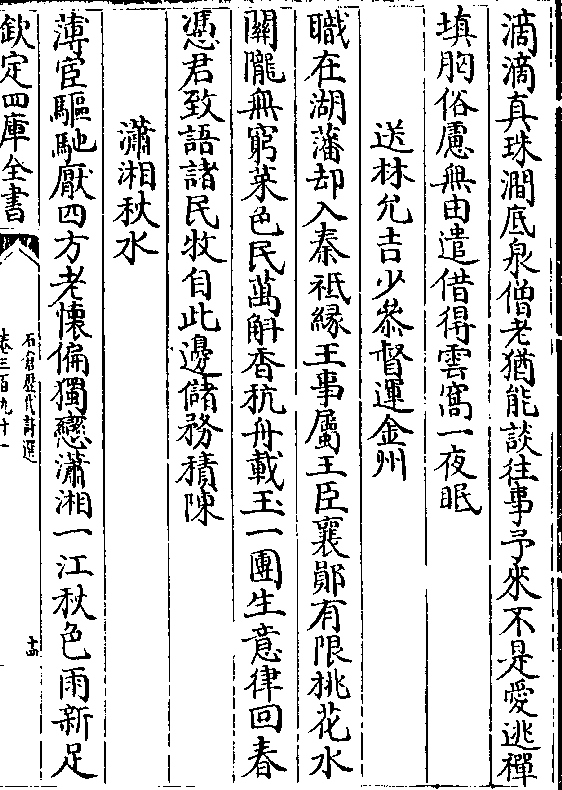 滴滴真珠澗底泉僧老猶能談往事予來不是愛逃禪
填胸俗慮無由遣借得雲窩一夜眠
送林允吉少叅督運金州
職在湖藩却入秦祗緣王事屬王臣襄鄖有限桃花水
關隴無窮菜色民萬斛香秔舟載玉一團生意律回春
憑君致語諸民牧自此邊儲務積陳
瀟湘秋水
薄宦驅馳厭四方老懷偏獨戀瀟湘一江秋色雨新足
欽定四庫全書
石倉歷代詩選
卷三百九十一
十四